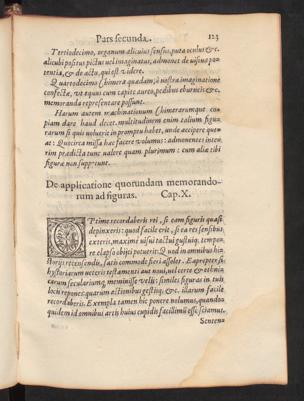 Pars secunda. 123
Tertiodecimo, organum alicuius sensus, puta oculus &c.
alicubi positus pictus vel imaginatus, admonet de visiua po-
tentia, & de actu, qui est videre.
Quartodecimo Chimera quædam, ó nostra imaginatione
confecta, vt equus cum capite aureo, pedibus eburneis &c.
memoranda repræsentare possunt.
Harum autem machinationum Chimerarumque co-
piam dare haud decet. multitudinem enim talium figu-
rarum si quis voluerit in promptu habet, vnde accipere que-
at: Quocirca missa hæc facere volumus: admonentes inte-
rim prædicta tunc valere quam plurimum: cum aliæ tibi
figuræ non suppetunt.
De applicatione quorundam memorando-
rum ad figuras. Cap. X.
OPtime recordaberis rei, si eam figuris quasi
depinxeris: quod facile erit, si ea res sensibus
exteris, maxime visui tactui gustuiq; tempo-
re elapso obijci potuerit: Quod in omnibus hi-
storijs recensendis, satis commode fieri assolet. Eapropter si
historiarum veteris testamenti aut noui, vel certe & ethni-
carum secularium q; meminisse velis: similes figuras in tuis
locis repones: quarum actionibus gestiq; &c. illarum facile
recordaberis. Exempla tamen hic ponere nolumus, quando-
quidem id omnibus artis huius cupidis facillimũ esse sciamus.
Senten-